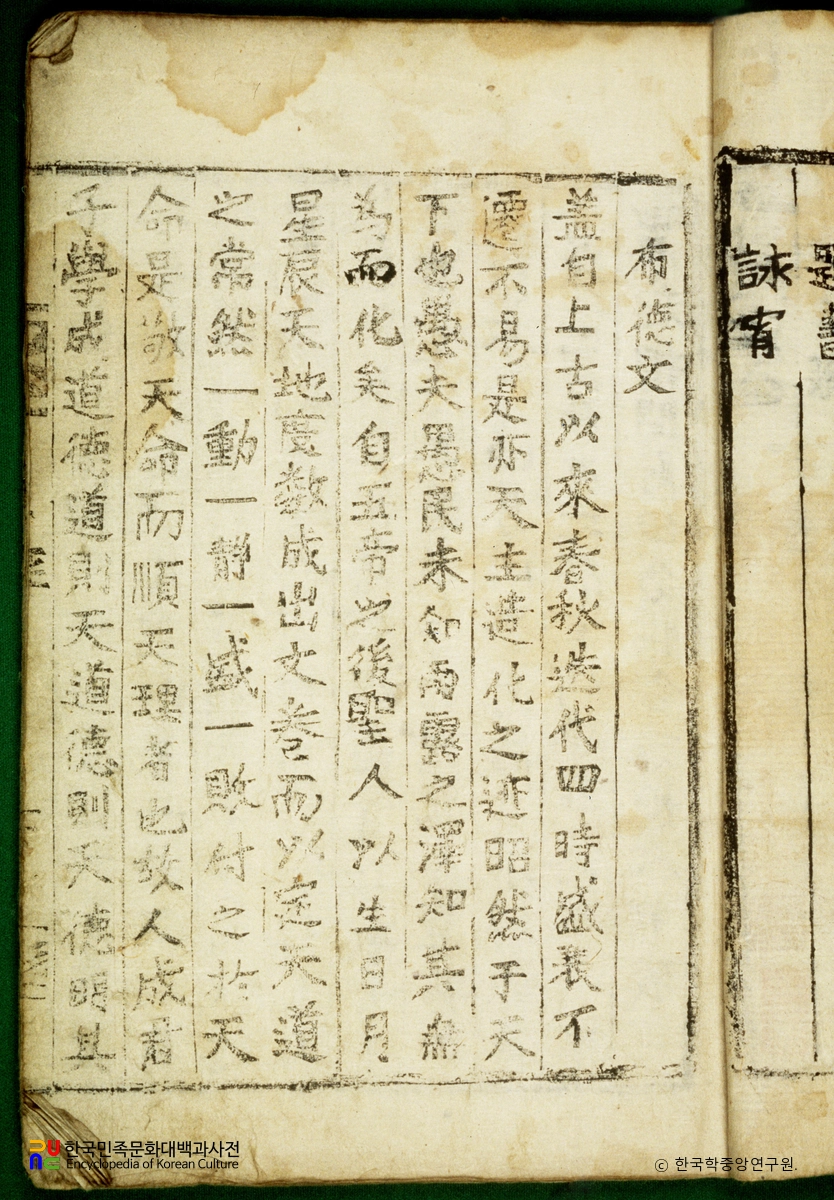 詠宵
布德文
盖自上古以來春秋迭代四時盛衰不
遷不易是亦天主造化之迹昭然于天
下也愚夫愚民未知雨露之澤知其無
為而化矣自五帝之後聖人以生日月
星辰天地度数成出文卷而以定天道
之常然一動一靜一盛一敗付之於天
命是敬天命而順天理者也故人成君
子學成道德道則天道德則天德明其
한국민족문화대백과사전
Encyclopedia of Korean Culture
ⓒ 한국학중앙연구원.